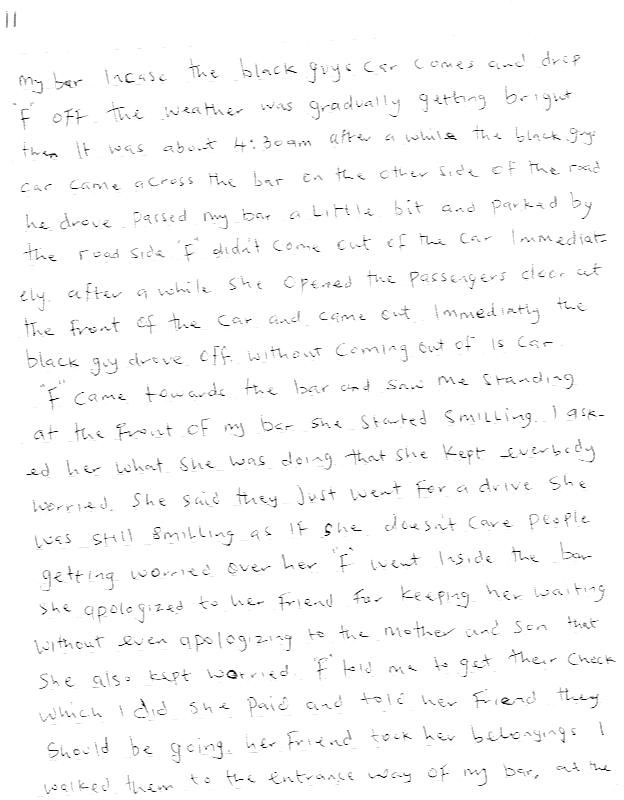 11
my bar Incase the black guys car comes and drop
"F" OFF. the weather was gradually getting bright
then It was about 4:30am after a while the black guys
car came across the bar on the other side of the road
he drove passed my bar a Little bit and parked by
the road side "F" didn't come out of the car Immediat-
ely. after a while she opened the passengers door at
the front of the car and came out Immediatly the
black guy drove off without coming out of is car.
"F" came towards the bar and saw me standing
at the front of my bar she started smilling. I ask-
ed her what she was doing that she kept everbody
worried. She said they Just went for a drive she
was still smilling as If she doesn't care people
getting worried over her "F" went Inside the bar
she apologized to her friend for keeping her waiting
without even apologizing to the mother and son that
She also kept worried. "F" told me to get their check
which I did she paid and told her friend they
Should be going. her friend took her belongings I
walked them to the entrance way of my bar, as the